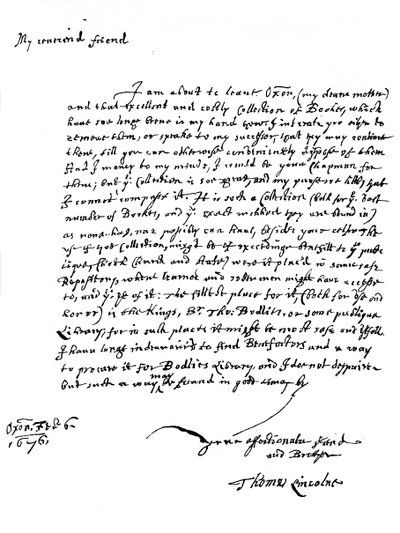 My reverend friend
I am about to leave Oxon, (my deare mother)
and that excellent and costly Collection of Bookes, which
have soe longe beene in my hand now I intreate you either to
remove them, or speake to my successor, that they may continue
there, till you can otherwise conveniently dispose of them
Had I money to my minde, I would be your Chapman for
them; but yᵉ Collection is soe great, and my purse so little, that
I cannot compasse it. It is such a Collection (both for yᵉ vast
number of Bookes, and yᵉ exact method they are bound in)
as none has, nor possibly can have, beside your selfe. The
use of that Collection, might be of exceedinge benefitt to yᵉ pub-
lique, (both Church and State) were it plac'd in some safe
Repository, where learned and sober men might have accesse
to, and yᵉ use of it. The fittest place for it, (both for use and
honor) is the Kings, Sʳ. Tho: Bodlies, or some publique
Library, for in such places it might be most safe and usefull.
I have longe indeavoured to find Benefactors and a way
to procure it for Bodlies Library, and I doe not despaire
but such a way may be found in good time by
Oxon. Feb. 6
1676.
your affectionate freind
and Brother
Thomas Lincolne